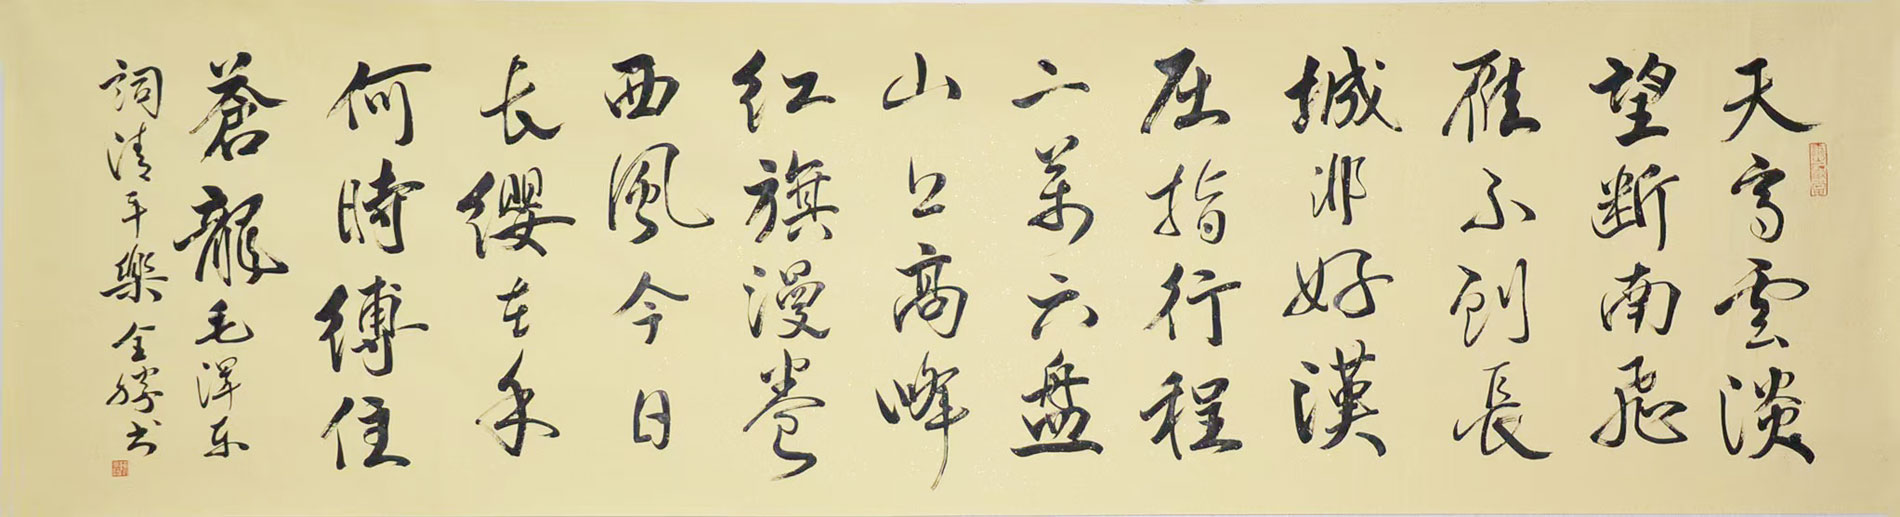 天高雲淡
望断南飛
雁不到長
城非好漢
屈指行程
二萬六盘
山上高峰
红旗漫卷
西風今日
长缨在手
何時缚住
蒼龍毛泽东
詞清平樂全勝书